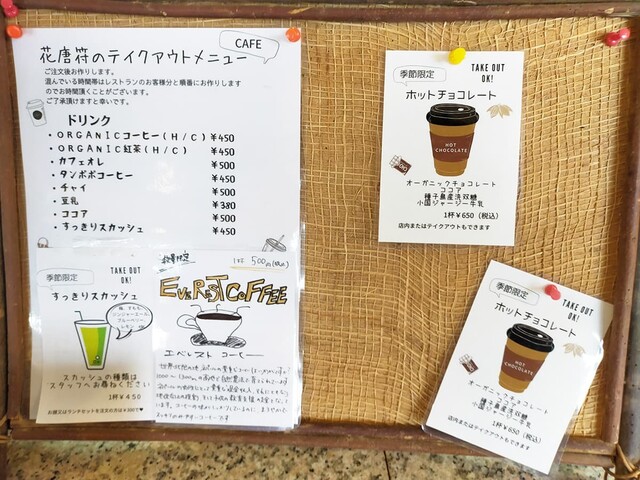 CAFE
花唐符のテイクアウトメニュー
ご注文後お作りします。
混んでいる時間帯はレストランのお客様分と順番にお作りします
のでお時間頂くことがございます。
ご了承頂けますと幸いです。
ドリンク
・ORGANICコーヒー(H/C) ¥450
・ORGANIC紅茶(H/C) ¥450
・カフェオレ ¥500
・タンポポコーヒー ¥450
・チャイ ¥500
・豆乳 ¥380
・ココア ¥500
・すっきりスカッシュ ¥450
季節限定
TAKE OUT
OK!
すっきりスカッシュ
ジンジャーエール、
ブルーベリー
スカッシュの種類は
スタッフへお尋ねください
1杯¥450
お昼又はランチセットを注文の方は¥300で♥
数量限定
1杯 500円(税込)
EVEREST COFFEE
エベレスト コーヒー
季節限定
TAKE OUT
OK!
ホットチョコレート
HOT
CHOCOLATE
オーガニックチョコレート
ココア
種子島産洗双糖
小国ジャージー牛乳
1杯¥650(税込)
店内またはテイクアウトもできます
季節限定
TAKE OUT
OK!
ホットチョコレート
HOT
CHOCOLATE
オーガニックチョコレート
ココア
種子島産洗双糖
小国ジャージー牛乳
1杯¥650(税込)
店内またはテイクアウトもできます